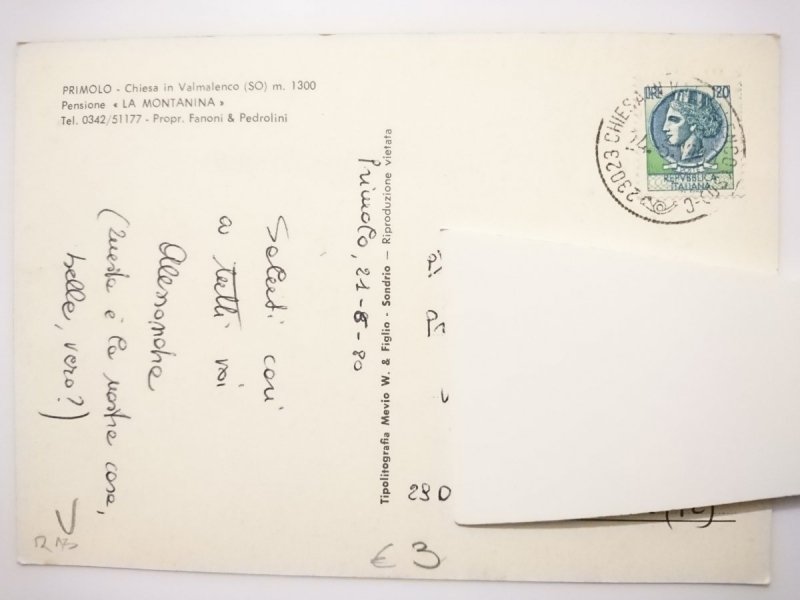 PRIMOLO - Chiesa in Valmalenco (SO) m. 1300
Pensione « LA MONTANINA »
Tel. 0342/51177 - Propr. Fanoni & Pedrolini
Primolo, 21-8-80
Saluti cari
a tutti voi
Alessandra
(questa è la nostra casa,
bella, vero?)
Tipolitografia Mevio W. & Figlio - Sondrio - Riproduzione vietata
LIRE 120
POSTE
REPVBBLICA
ITALIANA
23023 CHIESA IN
(SO)
290
€ 3